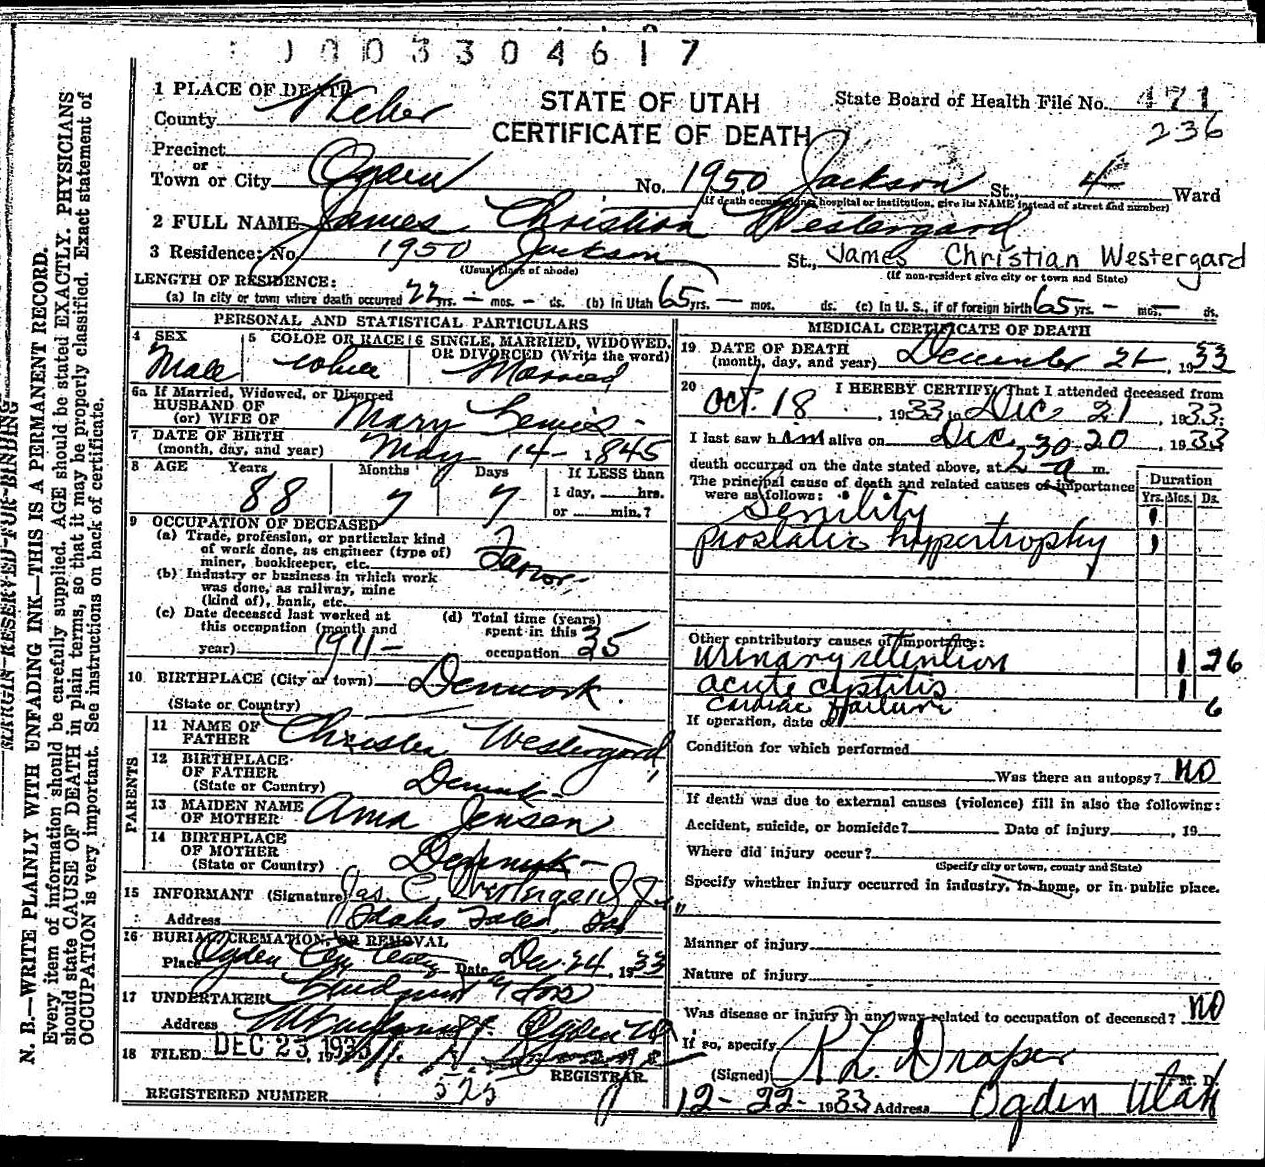 0003304617
1 PLACE OF DEATH
County Weber
STATE OF UTAH
CERTIFICATE OF DEATH
State Board of Health File No. 471
236
Precinct
or
Town or City Ogden No. 1950 Jackson St., 4 Ward
(If death occurred in a hospital or institution, give its NAME instead of street and number)
2 FULL NAME James Christian Westergard
3 Residence: No. 1950 Jackson St., James Christian Westergard
(Usual place of abode) (If non-resident give city or town and State)
LENGTH OF RESIDENCE:
(a) In city or town where death occurred 22 yrs. — mos. — ds. (b) In Utah 65 yrs. — mos. ds. (c) In U. S., if of foreign birth 65 yrs. — mos. — ds.
PERSONAL AND STATISTICAL PARTICULARS
4 SEX Male
5 COLOR OR RACE white
6 SINGLE, MARRIED, WIDOWED, OR DIVORCED (Write the word) Married
6a If Married, Widowed, or Divorced
HUSBAND OF
(or) WIFE OF Mary
7 DATE OF BIRTH
(month, day, and year) May 14 - 1845
8 AGE Years 88 Months 7 Days 7
If LESS than
1 day, hrs.
or min.?
9 OCCUPATION OF DECEASED
(a) Trade, profession, or particular kind
of work done, as engineer (type of)
miner, bookkeeper, etc.
(b) Industry or business in which work
was done, as railway, mine
(kind of), bank, etc.
(c) Date deceased last worked at
this occupation (month and
year) 1911 -
(d) Total time (years)
spent in this
occupation 35
10 BIRTHPLACE (City or town) Denmark.
(State or Country)
PARENTS
11 NAME OF
FATHER Westergard
12 BIRTHPLACE
OF FATHER
(State or Country) Denmark -
13 MAIDEN NAME
OF MOTHER Anna Jensen
14 BIRTHPLACE
OF MOTHER
(State or Country) Denmark -
15 INFORMANT (Signature) Jas. C. Westergard Jr.
Address Idaho Falls, Ida
16 BURIAL, CREMATION, OR REMOVAL
Place Ogden City Date Dec. 24, 1933
17 UNDERTAKER & Sons
Address Ogden
18 FILED DEC 23, 1933
REGISTRAR
REGISTERED NUMBER 525
MEDICAL CERTIFICATE OF DEATH
19 DATE OF DEATH
(month, day, and year) December 21 1933
20 I HEREBY CERTIFY, That I attended deceased from
Oct. 18, 1933 to Dec 21, 1933.
I last saw him alive on Dec. 20, 1933
death occurred on the date stated above, at 2 30 a m.
The principal cause of death and related causes of importance
were as follows:
Duration
Yrs. Mos. Ds.
Senility 1
prostatic hypertrophy 1
Other contributory causes of importance:
urinary retention 1 26
acute cystitis 1
cardiac failure 6
If operation, date of
Condition for which performed
Was there an autopsy? NO
If death was due to external causes (violence) fill in also the following:
Accident, suicide, or homicide? Date of injury , 19
Where did injury occur?
(Specify city or town, county and State)
Specify whether injury occurred in industry, in home, or in public place.
Manner of injury
Nature of injury
Was disease or injury in any way related to occupation of deceased? NO
If so, specify
(Signed) R L Draper M. D.
12 - 22 - 1933 Address Ogden Utah
MARGIN RESERVED FOR BINDING
N. B.—WRITE PLAINLY WITH UNFADING INK—THIS IS A PERMANENT RECORD.
Every item of information should be carefully supplied. AGE should be stated EXACTLY. PHYSICIANS
should state CAUSE OF DEATH in plain terms, so that it may be properly classified. Exact statement of
OCCUPATION is very important. See instructions on back of certificate.